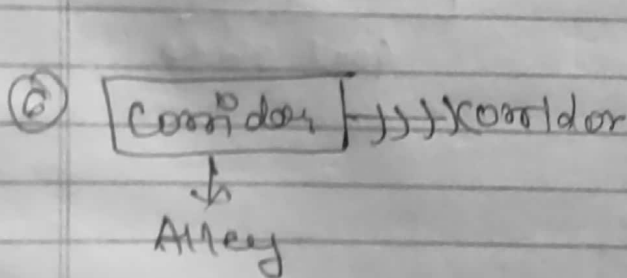 6 Corridor Korridor
Alley